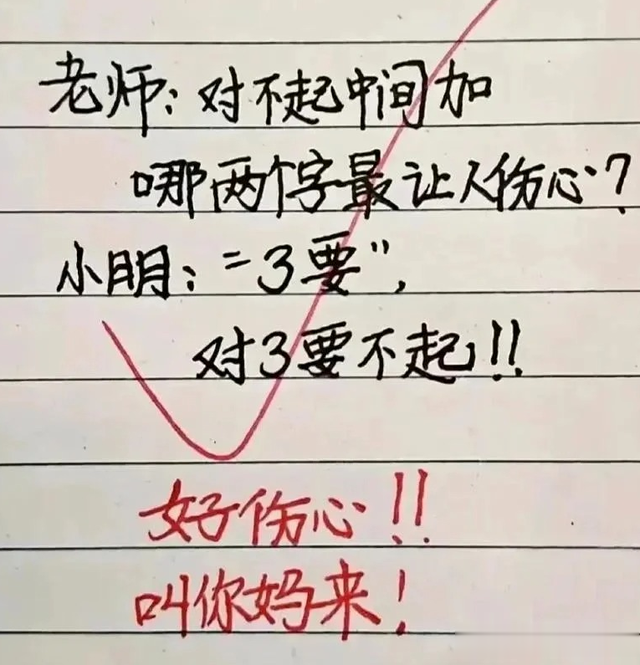 老师：对不起中间加
哪两个字最让人伤心？
小明："3要"，
对3要不起！！
好伤心！！
叫你妈来！